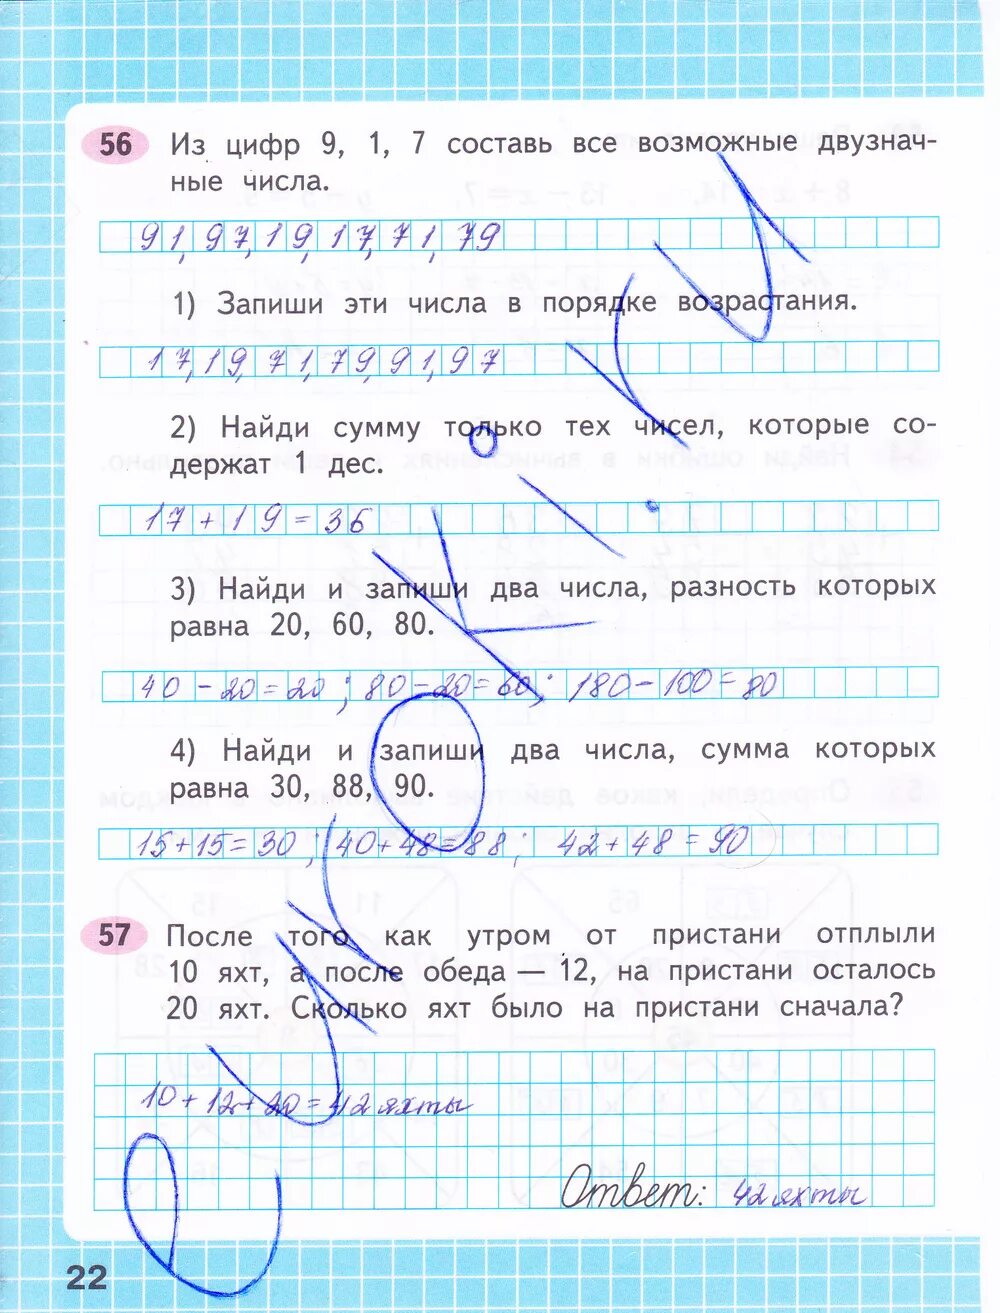 56 Из цифр 9, 1, 7 составь все возможные двузнач-
ные числа.
91, 97, 19, 17, 71, 79
1) Запиши эти числа в порядке возрастания.
17, 19, 71, 79, 91, 97
2) Найди сумму только тех чисел, которые со-
держат 1 дес.
17 + 19 = 36
3) Найди и запиши два числа, разность которых
равна 20, 60, 80.
40 - 20 = 20 ; 80 - 20 = 60 ; 180 - 100 = 80
4) Найди и запиши два числа, сумма которых
равна 30, 88, 90.
15 + 15 = 30 ; 40 + 48 = 88 ; 42 + 48 = 90
57 После того как утром от пристани отплыли
10 яхт, а после обеда — 12, на пристани осталось
20 яхт. Сколько яхт было на пристани сначала?
10 + 12 + 20 = 42 яхты
Ответ: 42 яхты
22